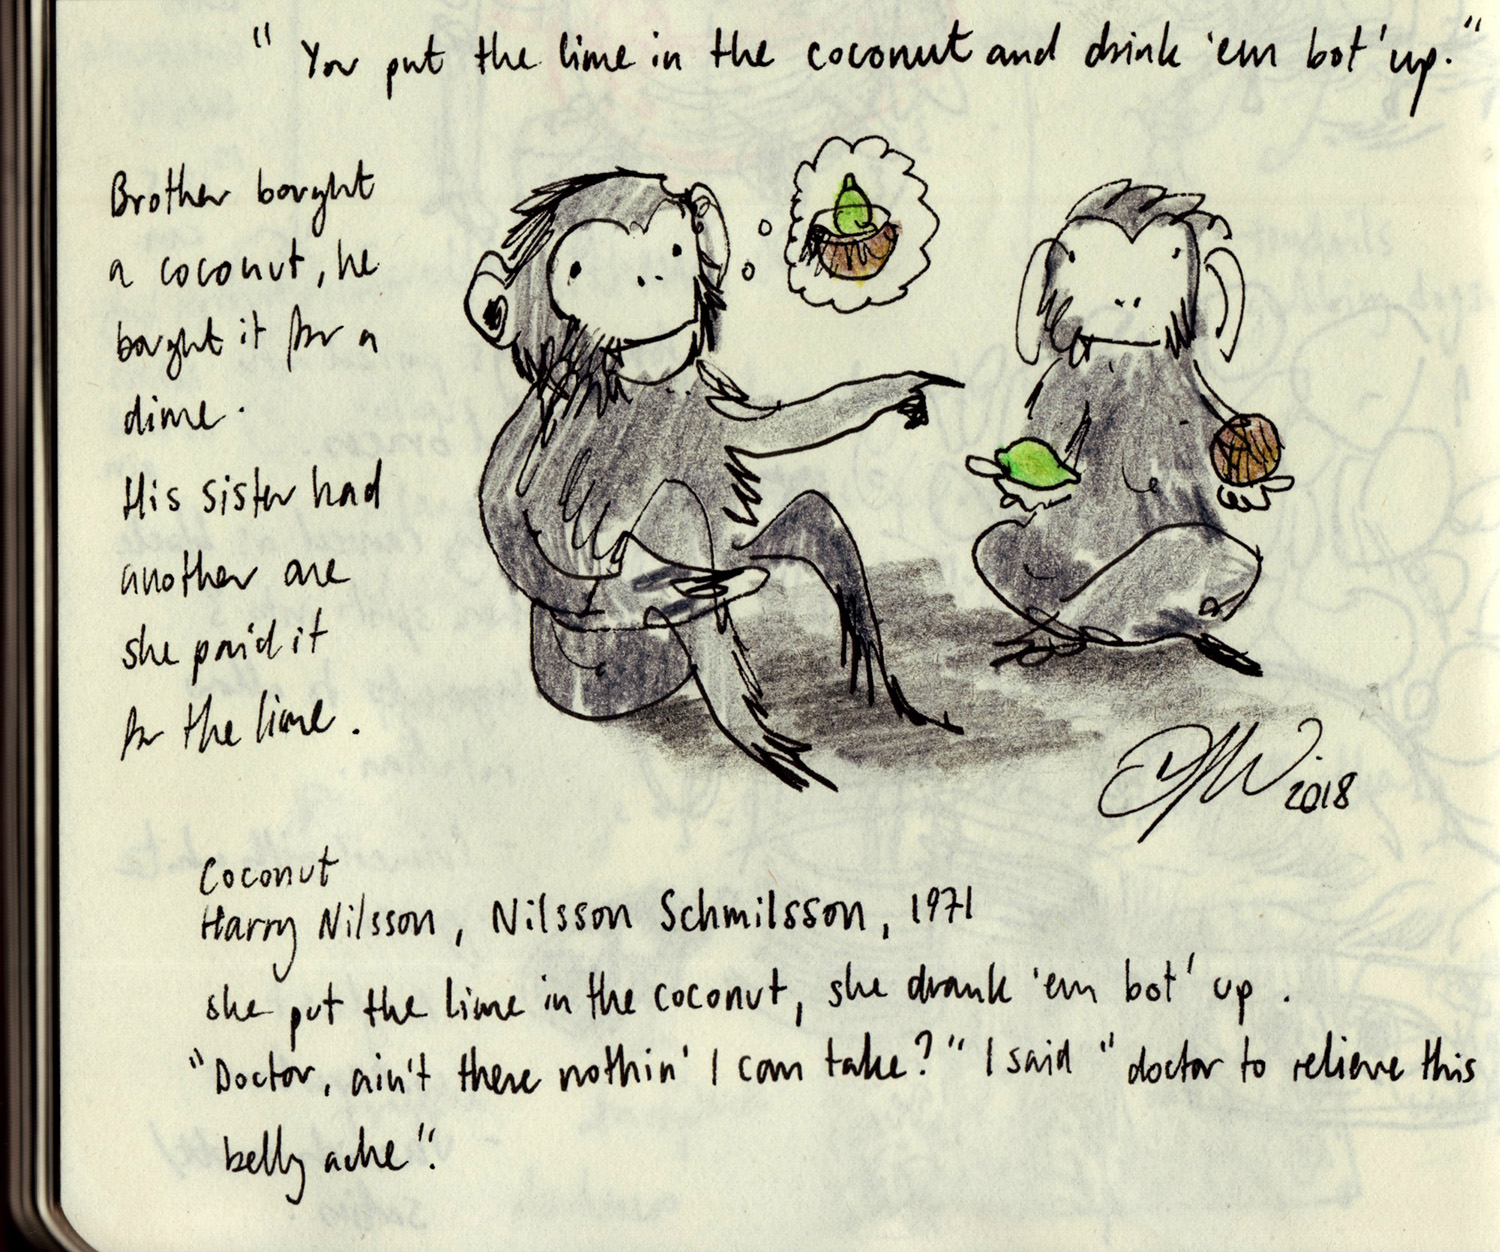 "You put the lime in the coconut and drink 'em bot' up."
Brother bought
a coconut, he
bought it for a
dime.
His sister had
another one
she paid it
for the lime.
2018
Coconut
Harry Nilsson, Nilsson Schmilsson, 1971
she put the lime in the coconut, she drank 'em bot' up.
"Doctor, ain't there nothin' I can take?" I said "doctor to relieve this
belly ache".